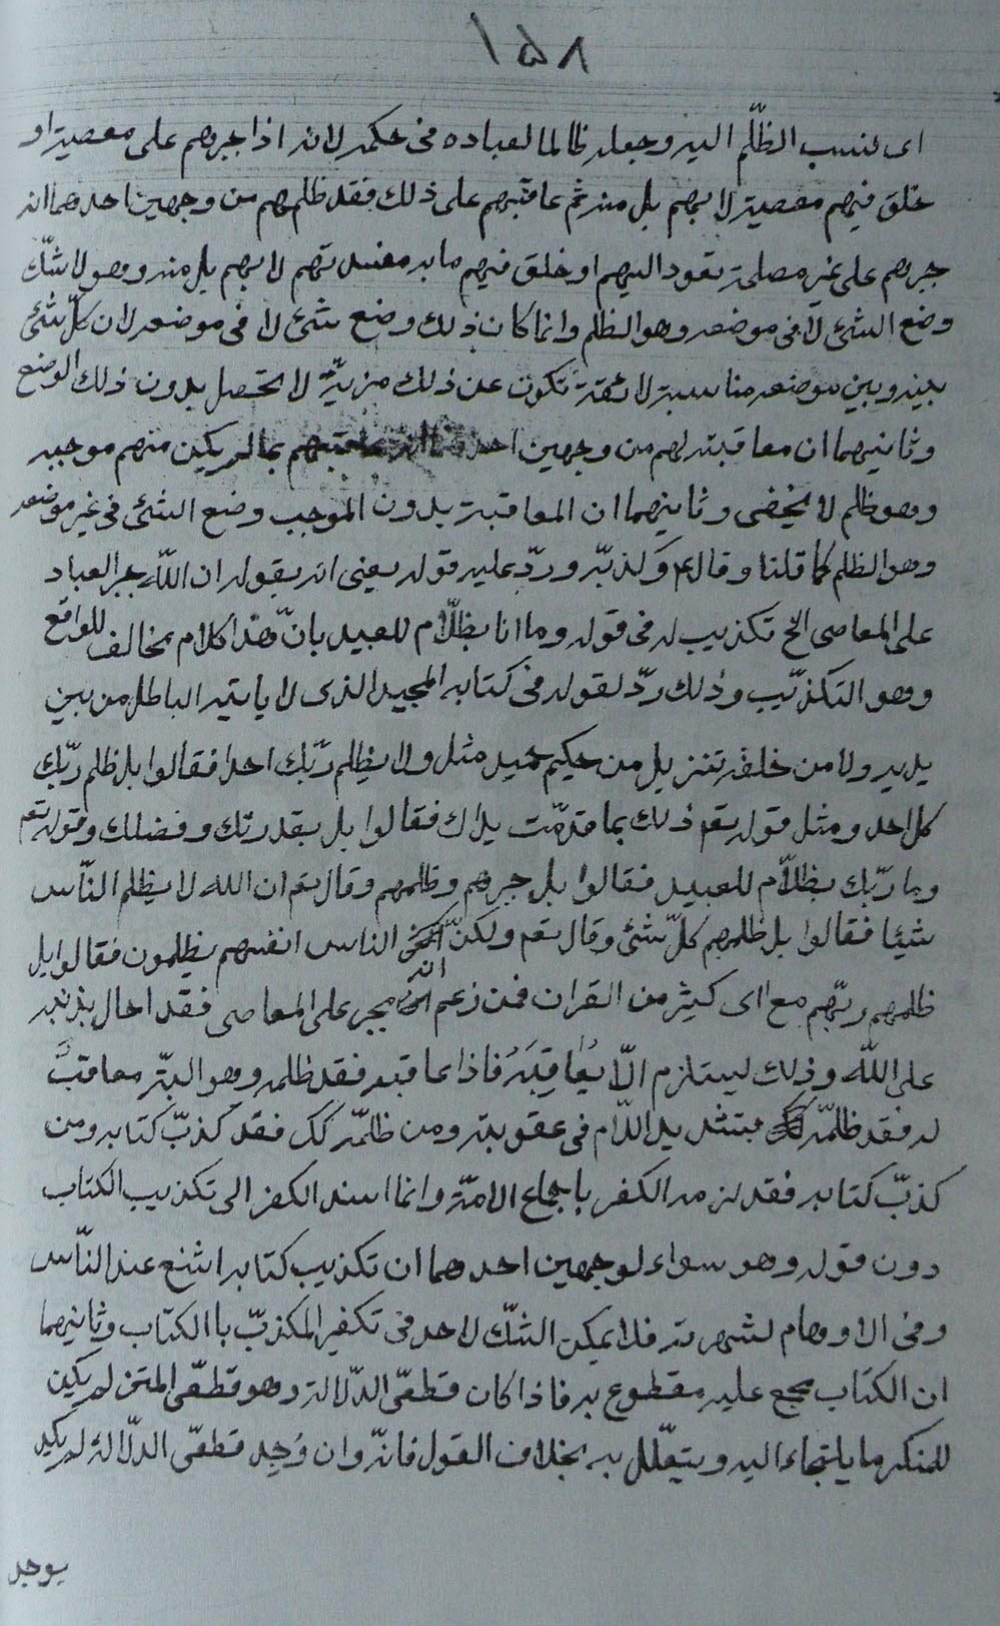 ١٥٨
اى نسب الظّلم اليه وجعله ظالما لعباده فى حكمه لانه اذا جبرهم على معصية او
خلق فيهم معصية لا بهم بل منه ثم عاقبهم على ذلك فقد ظلمهم من وجهين احدهما انه
جبرهم على غير مصلحة تعود اليهم او خلق فيهم ما به مفسدتهم لا بهم بل منه وهو لا شكّ
وضع الشئ لا فى موضعه وهو الظلم وانما كان ذلك وضع شئ لا فى موضعه لان كلّ شئ
بينه وبين موضعه مناسبة لائقة تكون عن ذلك مزيّة لا تحصل بدون ذلك الوضع
وثانيهما ان معاقبته لهم من وجهين احدهما انه عاقبهم بما لم يكن منهم موجبه
وهو ظلم لا يخفى وثانيهما ان المعاقبة بدون الموجب وضع الشئ فى غير موضعه
وهو الظلم كما قلنا وقال ع وكذّبه وردّ عليه قوله يعنى انه بقوله ان اللّه جبر العباد
على المعاصى الخ تكذيب له فى قوله وما انا بظلّام للعبيد بانّ هذا كلام مخالف للواقع
وهو التكذيب وذلك ردّ لقوله فى كتابه المجيد الذى لا ياتيه الباطل من بين
يديه ولا من خلفه تنزيل من حكيم حميد مثل ولا يظلم ربّك احدا فقالوا بل ظلم ربّك
كل احد ومثل قوله تعم ذلك بما قدّمت يداك فقالوا بل بقدرتك وفضلك وقوله تعم
وما ربّك بظلّام للعبيد فقالوا بل جبرهم وظلمهم وقال تعم ان الله لا يظلم النّاس
شيئا فقالوا بل ظلمهم كلّ شئ وقال تعم ولكنّ الناس انفسهم يظلمون فقالوا بل
ظلمهم ربّهم مع اى كثير من القران فمن زعم انه مجبر على المعاصى فقد احال بذنبه
على اللّه وذلك يستلزم الّا يُعاقِبَهُ فاذا عاقبه فقد ظلمه وهو البتّه معاقبٌ
له فقد ظلّمه بتشديد اللّام فى عقوبته ومن ظلّمه كك فقد كذّب كتابه ومن
كذّب كتابه فقد لزمه الكفر باجماع الامّة وانما اسند الكفر الى تكذيب الكتاب
دون قوله وهو سواء لوجهين احدهما ان تكذيب كتابه اشنع عند النّاس
وفى الاوهام لشهرته فلا يمكن الشّك لاحد فى تكفير المكذّب باالكتاب وثانيهما
ان الكتاب مجمع عليه مقطوع به فاذا كان قطعىّ الدّلالة وهو قطعىّ المتن لم يكن
للمنكر ما يلتجاء اليه ويتعلّل به بخلاف القول فانّه وان وُجِد قطعىّ الدلّالة لم يكد
يوجد